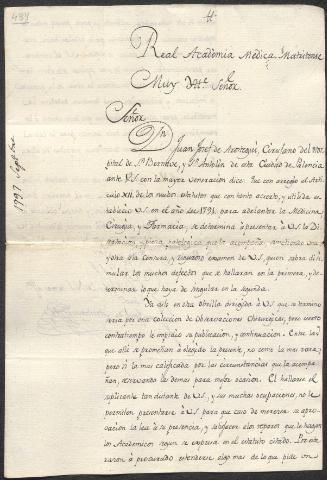 4.
Real Academia Medica Matritense
Muy Ill.e Señor
Señor
Dn Juan Josef de Arostegui, Cirujano del Hos-
pital de Sn Bernabe, y Sn Antolin de esta Ciudad de Palencia
ante VS con la mayor veneracion dice: Que con arreglo al Arti-
culo XII, de los nuebos estatutos que con tanto acierto, y utilidad es-
tablecio VS en el año de 1791, para adelantar la Medicina
Cirugia, y Farmacia, se determina à presentar à VS la Di-
sertacion, y pieza patologica que la acompaña, sometiendo una
y otra à la censura, y riguroso examen de VS, quien sabra disi-
mular los muchos defectos que se hallaran en la primera, y de-
sentrañar lo que haya de singular en la segunda.
Ya dijo en otra obrilla dirigida à VS que se termina-
ria por una coleccion de Observaciones Chirurgicas, pero cierto
contratiempo le impidio su publicacion, y continuacion. Entre las
que alli se prometian à elegido la presente, no como la mas rara,
pero si la mas calificada por las circunstancias que la acompa-
ñan, reservando las demas para mejor ocasion. El hallarse el
suplicante tan distante de VS, y sus muchas ocupaciones, no le
permiten presentarse à VS para que caso de merecer su apro-
vacion la lea à su presencia, y satisfacer los reparos que le hagan
los Academicos segun se expresa en el estatuto citado. Por esta
razon à procurado extenderse algo mas de lo que pide un
1797 Septbre